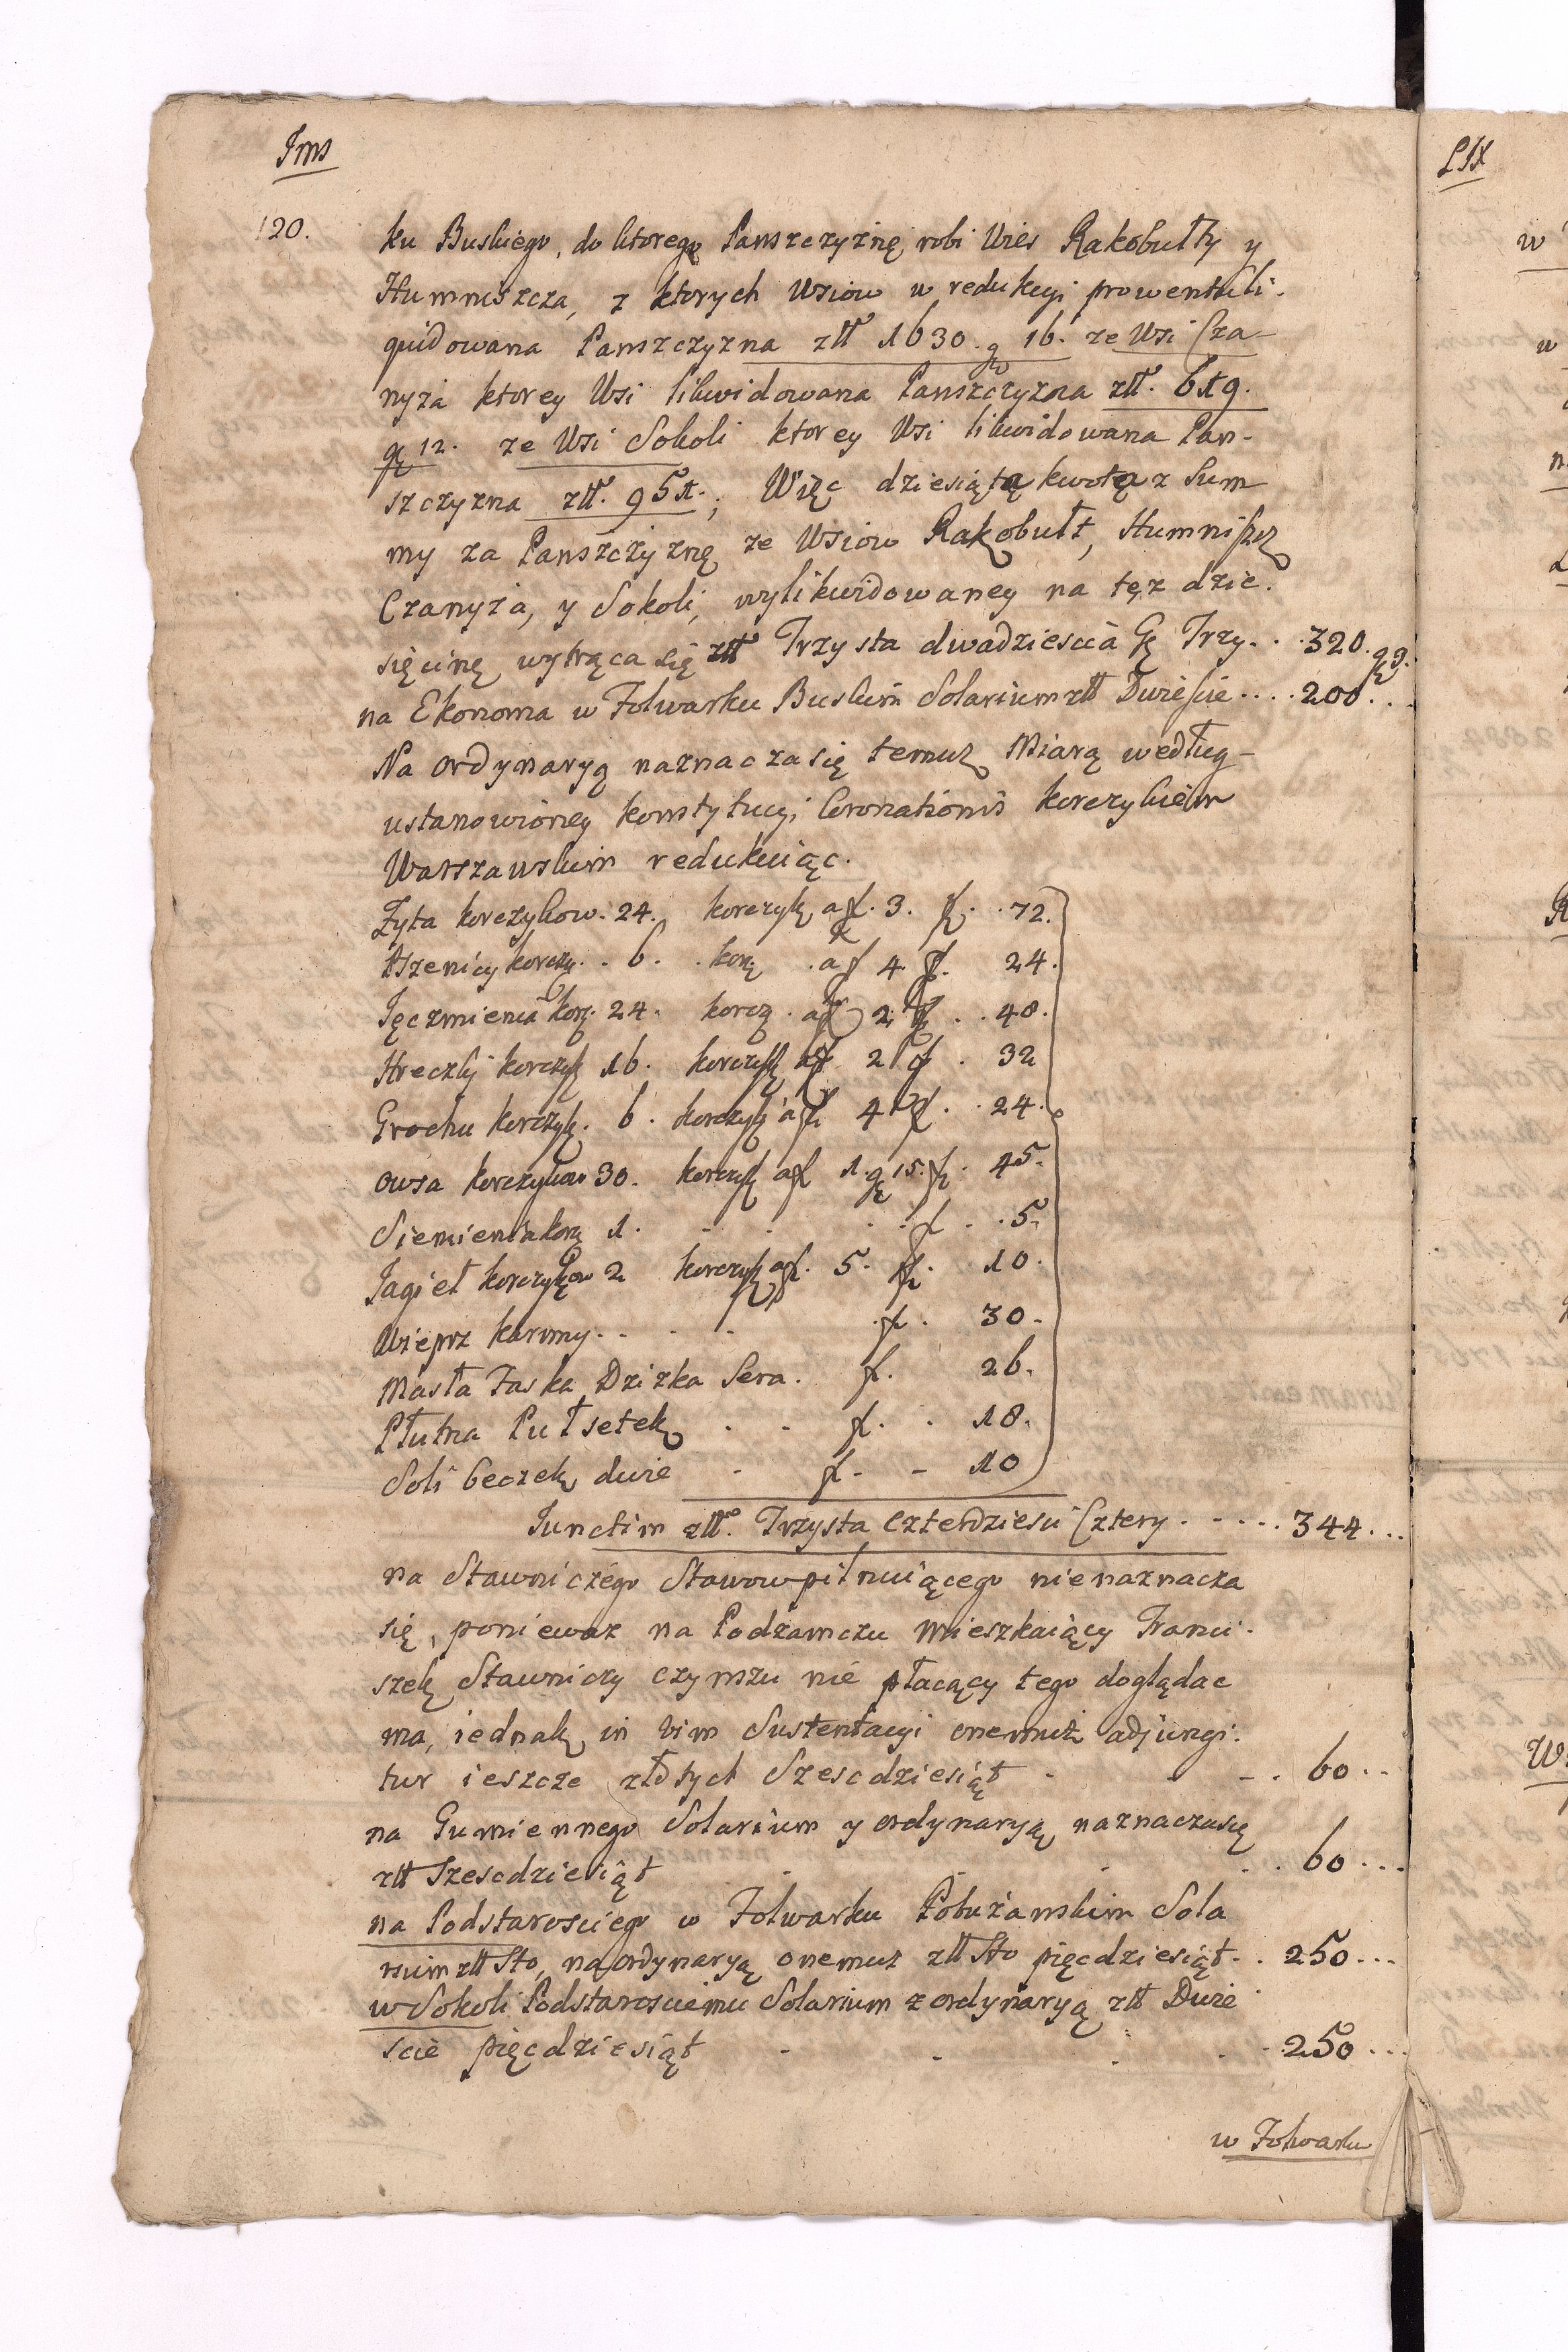 Ims
120.
ku Buskiego, do ktorego Panszczyznę robi Wies Rakobutty y
Humniszcza, z ktorych Wsiow w redukcyi prowentu li-
quidowana Panszczyzna złł 1630. gr 16. ze Wsi Cza-
nyża ktorey Wsi likwidowana Panszczyzna złł. 619.
gr 12. ze Wsi Sokoli ktorey Wsi likwidowana Pan-
szczyzna złł. 951.; Więc dziesiątą kwotę z Sum
my za Panszczyznę ze Wsiow Rakobutt, Humniszcz
Czanyża, y Sokoli, wylikwidowaney na tęż dzie-
sięcinę wytrąca się złł Trzysta dwadziescia Gr Trzy. . . 320. gr 3.
na Ekonoma w Folwarku Buskim Solarium złł Dwieście . . . . 200 . .
Na ordynaryą naznacza się temuż Miarą według-
ustanowioney konstytucyi Coronationis korczykiem
Warszawskim redukuiąc.
Żyta korczykow. 24. korczyk a fl. 3. fl. . 72.
Pszenicy korczy. . 6. . korz. . a fl 4. fl. 24.
Jęczmienia korz. 24. korcz. a fl 2. fl . . 48.
Hreczki korczyk 16. korczyk a fl 2 fl . 32
Grochu korczyk. 6. korczyk a fl 4 fl. . 24.
owsa korczykow 30. korczyk a fl 1. gr 15. fl. 45.
Siemienia korz 1. . . . . fl . . 5.
Jagieł korczykow 2 korczyk a fl. 5. fl. 10.
Wieprz karmny. . . . fl. 30.
Masła Faska, Dziżka Sera. fl. 26.
Płutna Puł setek . . fl. . 18.
Soli beczek dwie - fl. - 10
Junctim złł. Trzysta Czterdziesci Cztery . . . . . 344 . . .
na Stawniczego Stawow pilnuiącego nienaznacza
się, poniewaz na Podzamczu Mieszkaiący Franci-
szek Stawniczy czynszu nie płacący tego doglądac
ma, iednak in vim Sustentacyi onemuż adjungi-
tur ieszcze złotych Szescdziesiąt . . . . 60 . .
na Gumiennego Solarium y ordynaryą naznacza się
złł Szescdziesiąt . . . . 60 . . .
na Podstarosciego w Folwarku Pobużanskim Sola
rium złł Sto, na ordynaryą onemuz złł Sto pięcdziesiąt. . 250 . . .
w Sokoli Podstarosciemu Solarium z ordynaryą złł Dwie
scie pięcdziesiąt . . . . 250 . . .
w Folwarku
LIX